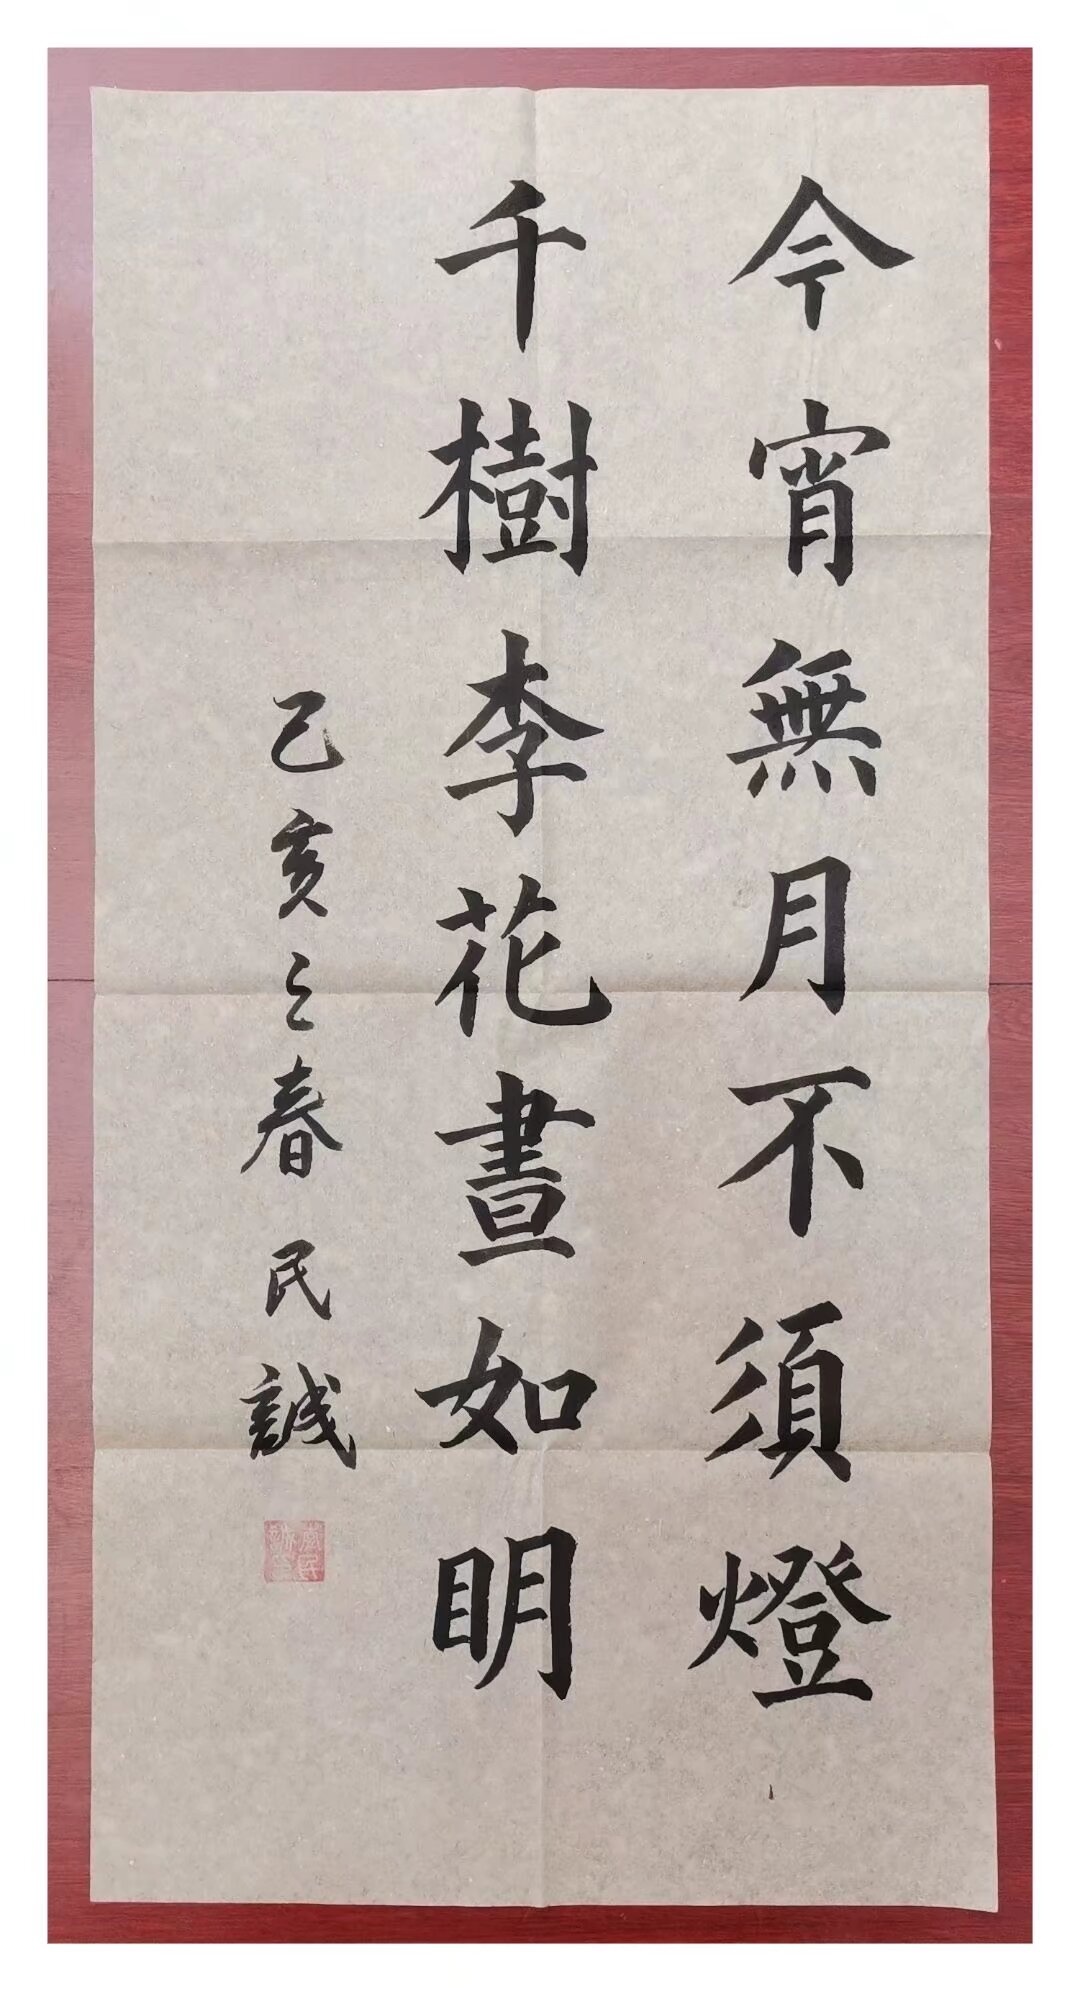 今宵無月不須燈
千樹李花晝如明
己亥之春 民誠